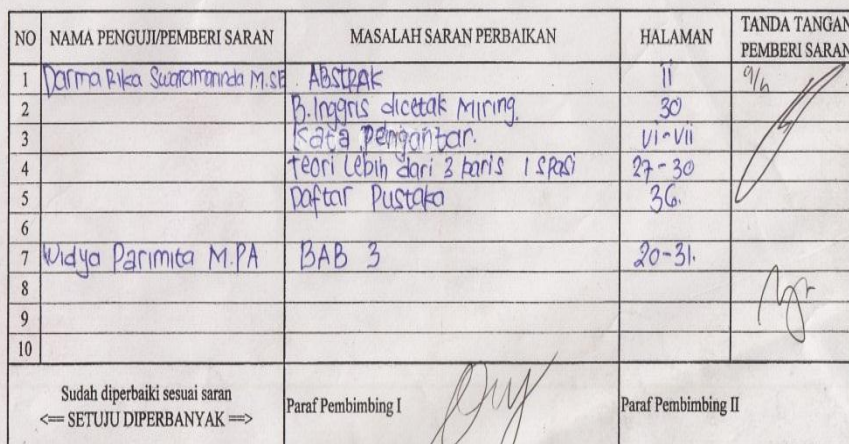 NO NAMA PENGUJI/PEMBERI SARAN MASALAH SARAN PERBAIKAN HALAMAN TANDA TANGAN PEMBERI SARAN
1 Darma Rika Swaramarinda M.SE ABSTRAK ii
2 B.Inggris dicetak Miring. 30
3 Kata Pengantar. vi-vii
4 teori Lebih dari 3 baris 1 spasi 27-30
5 Daftar Pustaka 36.
6
7 Widya Parimita M.PA BAB 3 20-31.
8
9
10
Sudah diperbaiki sesuai saran
<== SETUJU DIPERBANYAK ==> Paraf Pembimbing I Paraf Pembimbing II